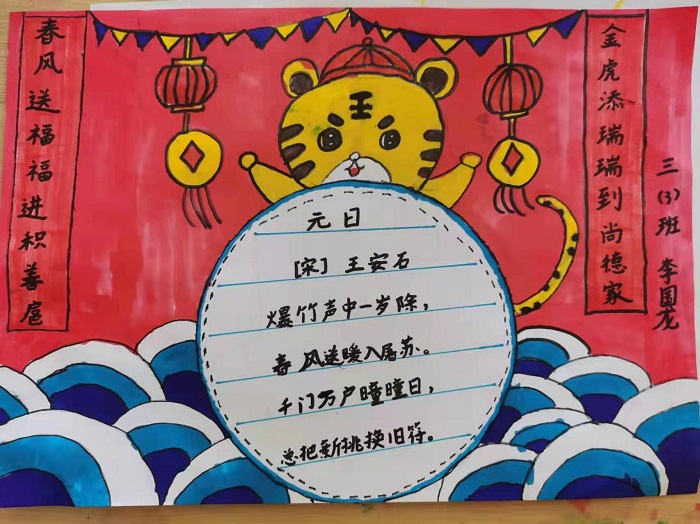 金虎添瑞瑞到尚德家
春风送福福进积善扈
王
元日
[宋] 王安石
爆竹声中一岁除，
春风送暖入屠苏。
千门万户瞳瞳日，
总把新挑换旧符。
三(3)班 李国龙